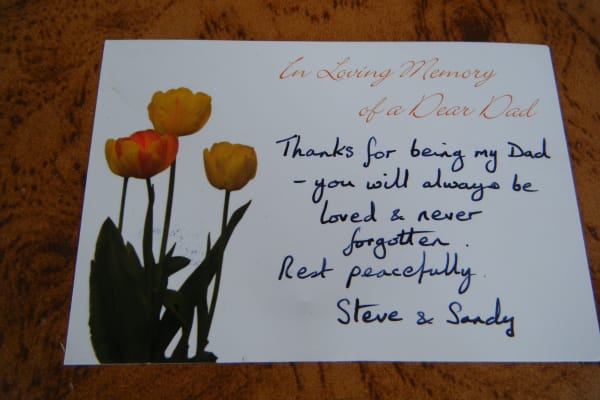 In Loving Memory
of a Dear Dad
Thanks for being my Dad
- you will always be
loved & never
forgotten.
Rest peacefully.
Steve & Sandy